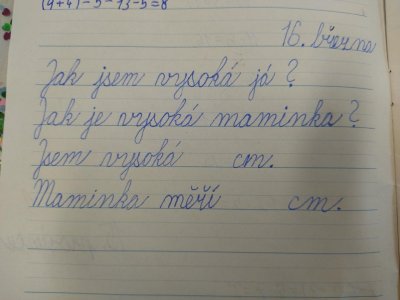 (9+4)-5=13-5=8
16. března
Jak jsem vysoká já?
Jak je vysoká maminka?
Jsem vysoká cm.
Maminka měří cm.